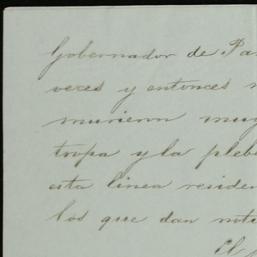 Gobernador de Pa
veces y entonces
murieron muy
tropa y la pleb
esta linea residen
los que dan not
El